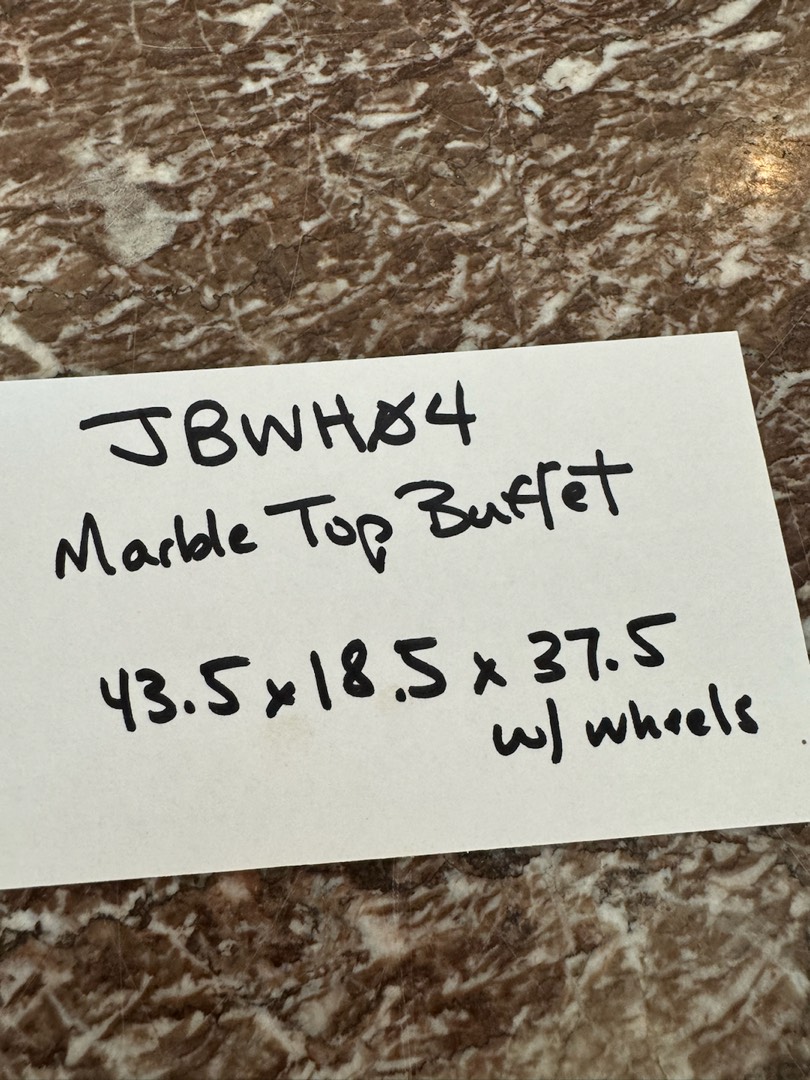 JBWHØ4
Marble Top Buffet
43.5 x 18.5 x 37.5
w/ wheels